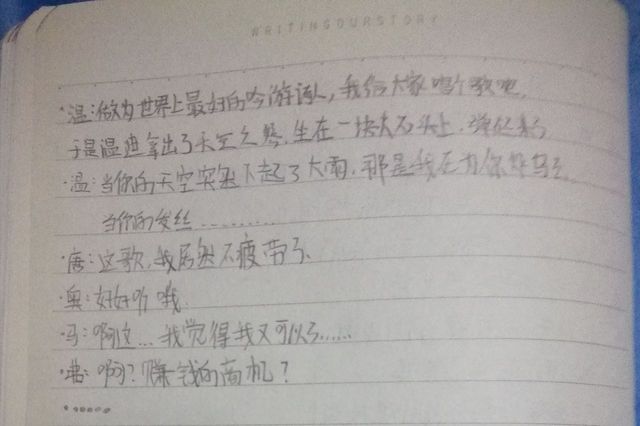 WRITINGOURSTORY
·温:做为世界上最好的吟游诗人,我给大家唱个歌吧
于是温迪拿出了天空之琴,坐在一块大石头上,弹起来了
·温:当你的天空突然下起了大雨,那是我在为你炸乌云
当你的发丝..........
·唐:这歌,我居然不疲劳了、
·奥:好好听哦.
·马:啊这...我觉得我又可以了......
啊?赚钱的商机?
......